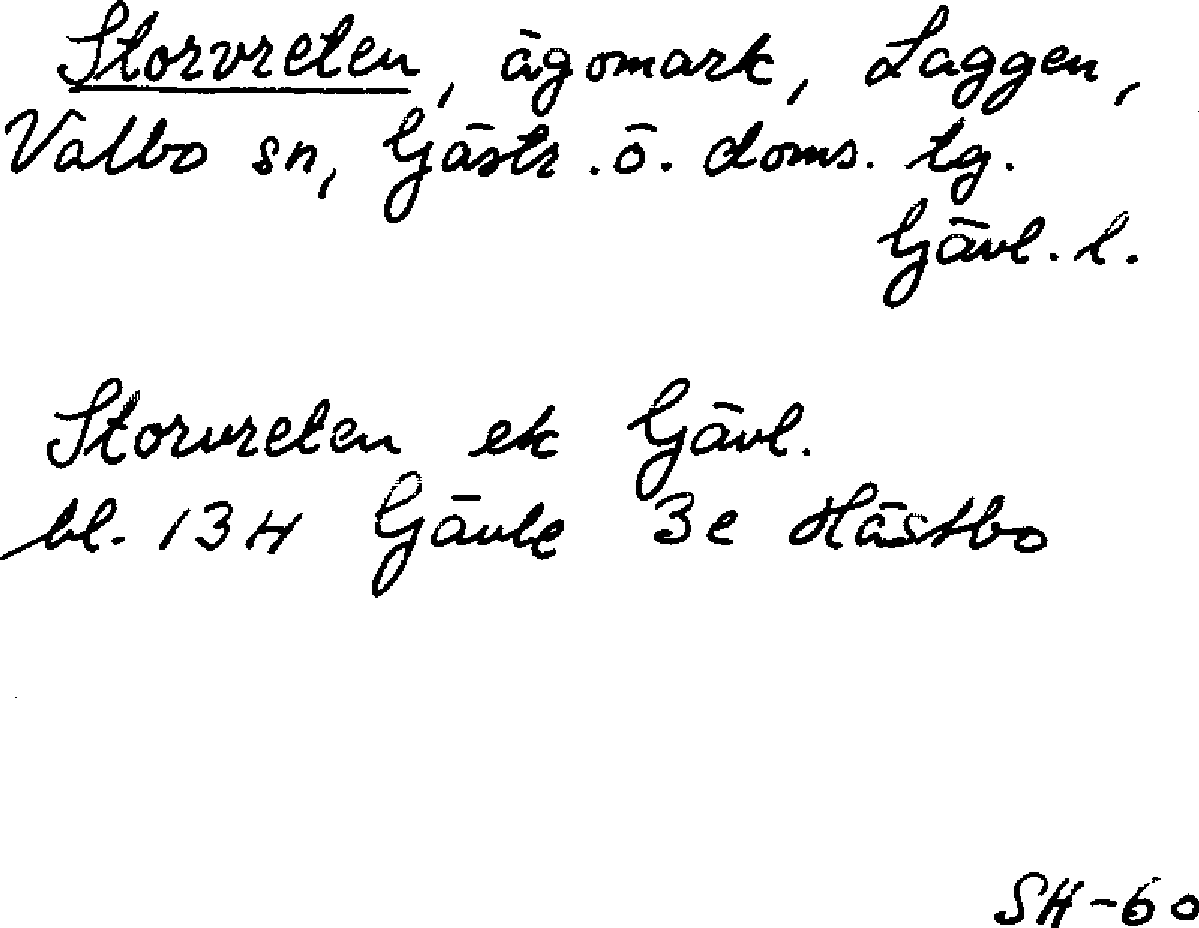 Storvreten, ägomark, Laggen,
Valbo sn, Gästr. ö. doms. tg.
Gävl. l.
Storvreten ek Gävl.
bl. 13H Gävle 3e Hästbo
SH-60